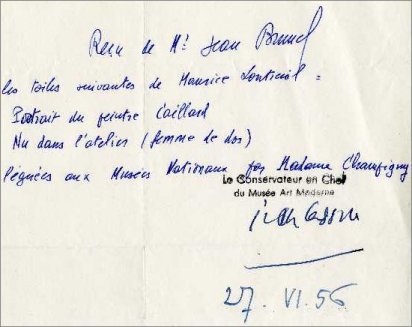 Reçu de Mr Jean Brunel
les toiles suivantes de Maurice Loutreuil =
Portrait du peintre Caillard
Nu dans l'atelier (femme de dos)
léguées aux Musées Nationaux par Madame Champigny
Le Conservateur en Chef
du Musée Art Moderne
Jean Cassou
27. VI. 56